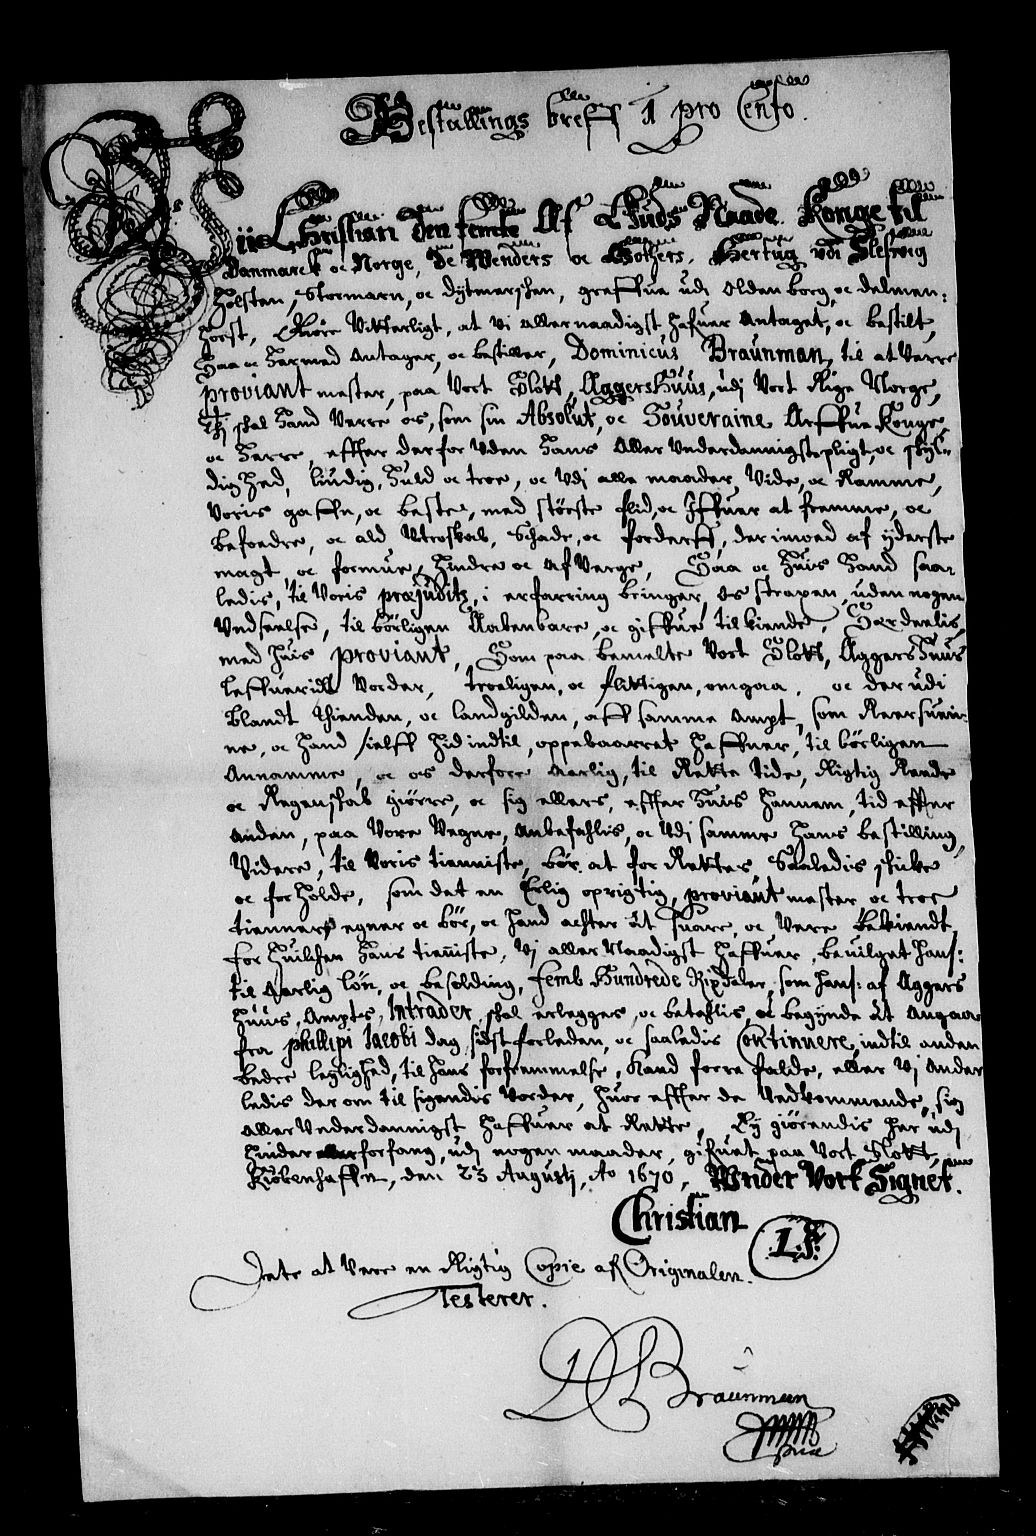 Bestallings breff 1 pro Cento.
Wii Christian den femte Af Guds Naade Konge til
Danmarck oc Norge, de Wenders oc Gothers, Hertug udi Slesvig
Holsten, Stormarn, oc Dytmerschen, Greffue udi Oldenborg oc Delmen:
horst, Giøre Vitterligt, at Vi Allernaadigst hafuer Antaget, oc bestilt,
Saa oc hermed Antager, oc bestiller, Dominicus Braunman, til at Verre
proviant mester, paa Vort Slott, Aggershuus, udj Vort Rige Norge,
Thj skal Hand Verre os, som sin Absolut, oc Souveraine Arffue Konge,
oc Herre, effter derfor Uden Hans Aller Underdannigste pligt, oc skyl=
dighed, lündig, Huld oc troe, oc Udj alle maader, Vide, oc Ramme,
Voris gaffn, oc beste, med störste flid, oc Iffuer at fremme, oc
befordre, oc ald Utroskab, Schade, oc forderff, derimod af yderste
magt, oc formue, hindre oc Af Verge, Saa oc Huis Hand saa=
ledis, til Voris præjuditz, i erfarring bringer, Os strapen, uden nogen
Undseelse, til börligen Aabenbare, oc giffue tilkiende, Særdeelis,
med huis proviant, Som paa bemelte Vort Slott, Aggershuus
leffueridt Vorder, troeligen, oc flittigen, omgaa, oc der udi
blandt thienden, oc landgilden, aff samme Ampt, som Reersuein:
ne, oc Hand sielff hid indtil, oppebaarret haffuer, til börligen
Annamme, oc os derforre Aarlig, til Rette tide, Rigtig Reede
oc Regenskab giörre, oc sig ellers, effter huis hannem, tid effter
anden, paa Vore Vegne, Anbefahlis, oc Udj samme hans bestilling
Videre, til Voris tienniste, bör at for Rettes, Saaledis skicke
oc forholde, som det en Erlig oprigtig, proviant mester, oc troe
tiennere egner oc bör, oc Hand achter at suare, oc Vere bekiendt,
for Huilchen Hans tienniste, Vj aller Naadigst haffuer, beuilget hans:
til Aarlig lön, oc besolding, femb Hundrede Rixdaler, som hans: af Aggers
Huus, Ampts, Intrader, skal erlegges, oc betahlis, oc begynde at Angaa
fra phillipi Jacobi dag, sidst forleden, oc saaledis Continuere, indtil anden
bedre leylighed, til hans forfremmelse, kand forre falde, eller Vj Ander
ledis der om til sigendis Vorder, huor effter de Vedkommende, sig
Aller Underdannigst haffuer at Rette, Ey giörendis her udj
hinder eller forfang, udj nogen maader, gifuet paa Vort Slott,
Kiöbenhaffn, den 23 Augustj, Ao 1670, Under Vort Signet.
Christian
L:S:
Dete at Vere en Rigtig Copie af Originalen.
Testerer.
D Braunman